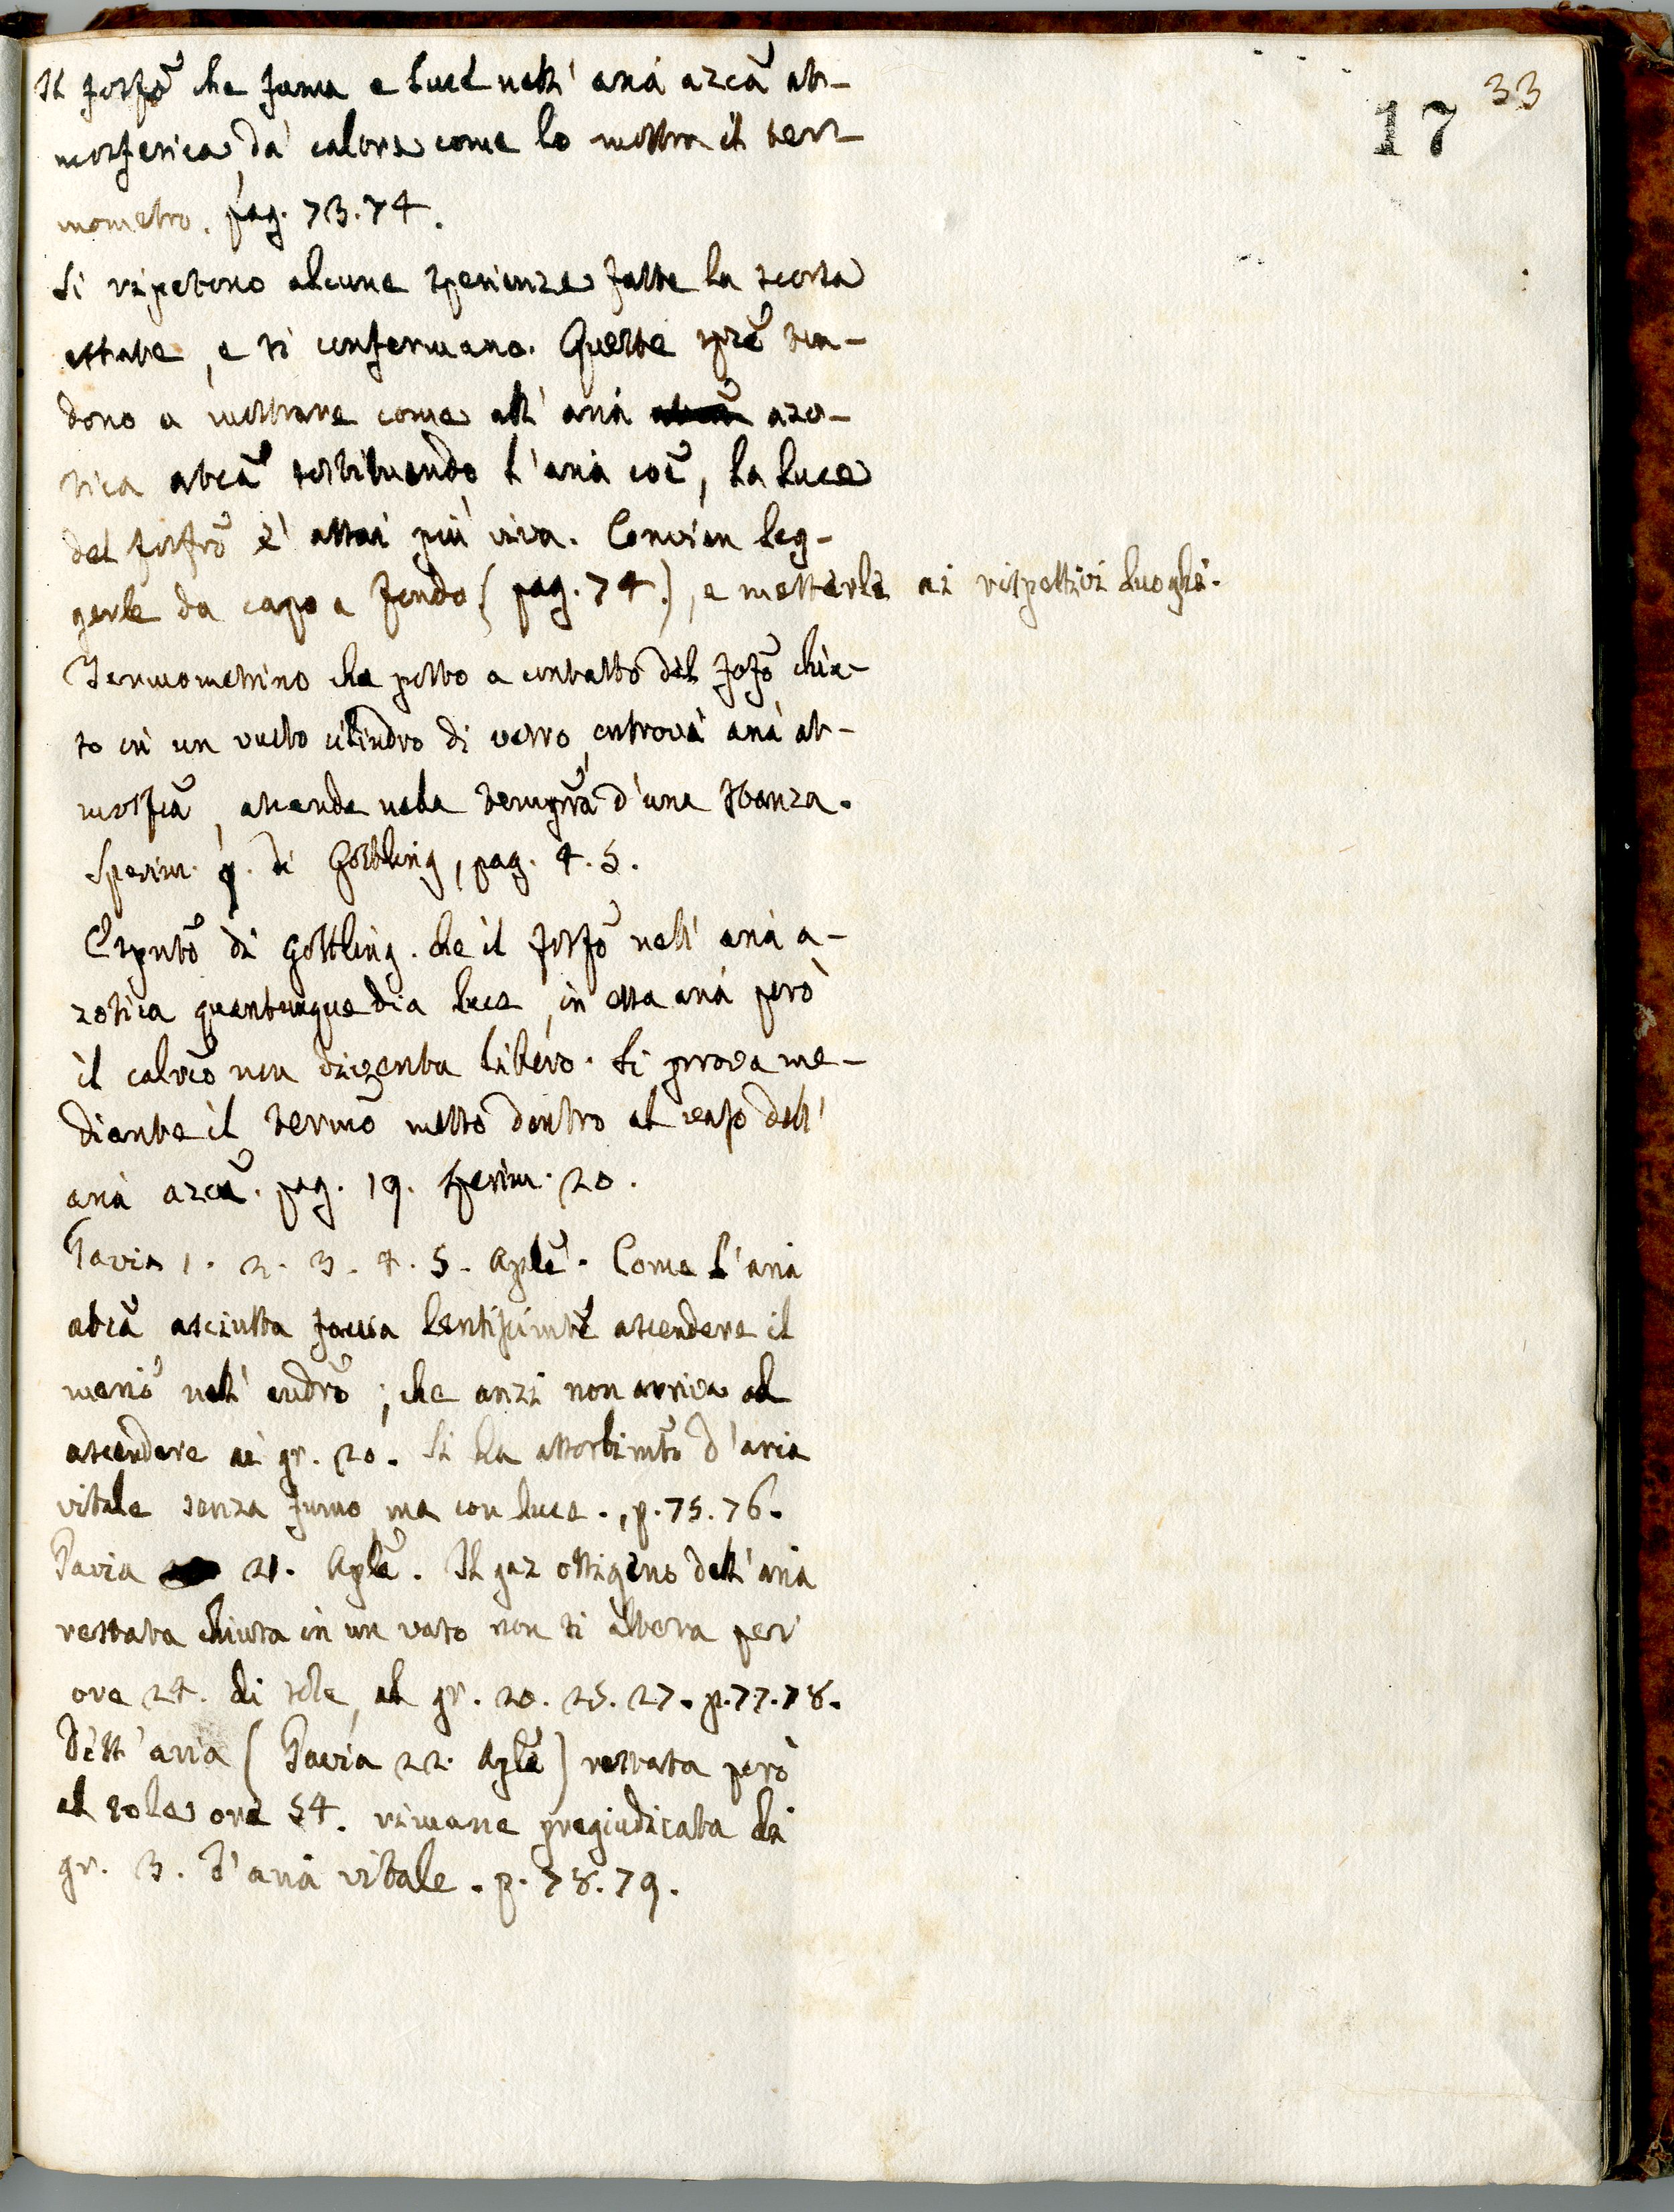 33
17
Il fosfõ che fuma e luce nell' aria azcã at-
mosferica, da' calore come lo mostra il ter
mometro. pag. 73.74.
Si ripetono alcune sperienze fatte la scorsa
estate, e si confermano. Queste spzẽ ten-
dono a mostrare come all' aria azo-
tica atcã sostituendo l'aria coẽ, la luce
del fosfrõ è assai più viva. Convien leg-
gerle da capo a fondo (pag. 74.), e metterle ai rispettivi luoghi.
Termometrino che posto a contatto del fosfõ chiu-
so in un vuoto cilindro di vetro, entrovi aria at-
mosfcã, ascende nella tempr̃a d'una stanza.
Sperim. p. di Gottling, pag. 4.5.
Esprntõ di Gottling. che il fosfõ nell' aria a-
zotica quantunque dia luce, in essa aria però
il calricõ non diventa libero. Si prova me-
diante il termõ messo dentro al vaso dell'
aria azcã. pag. 19. sperim. 20.
Pavia 1. 2. 3. 4. 5. Aplẽ. Come l'aria
atcã asciutta faccia lentissimtẽ ascendere il
meriõ nell' eudrõ; che anzi non arriva ad
ascendere ai gr. 20. Si ha assorbimtõ d'aria
vitale senza fumo, ma con luce., p. 75.76.
Pavia 21. Aplẽ. Il gaz ossigeno dell'aria
restata chiusa in un vaso non si altera per
ore 24. di sole, al gr. 20. 25. 27. p. 77.78.
Dett' aria (Pavia 22. Aplẽ) restata però
al sole ore 54. rimane pregiudicata di
gr. 3. d'aria vitale. p. 78.79.